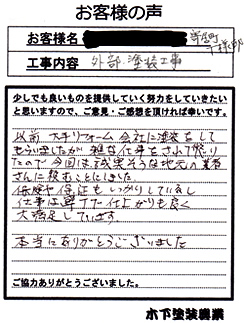 お客様の声
お客様名
様邸
工事内容
外部塗装工事
少しでも良いものを提供していく努力をしていきたい
と思いますので、ご意見・ご感想を頂ければ幸いです。
以前 大手リフォーム会社に塗装をして
もらいましたが 雑な仕事をされて懲り
たので今回は誠実そうな地元の業者
さんに頼むことにしました。
保険や保証もしっかりしているし
仕事は丁寧で仕上がりも良く
大満足しています。
本当にありがとうございました
ご協力ありがとうございました。
木下塗装職業